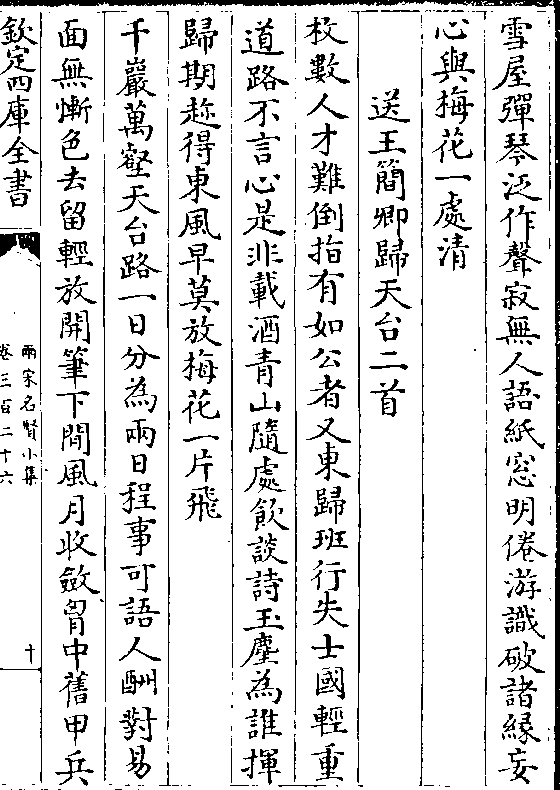 雪屋彈琴泛作聲寂無人語紙窓明倦游識破諸縁妄
心與梅花一處清
送王簡卿歸天台二首
枚數人才難倒指有如公者又東歸班行失士國輕重
道路不言心是非載酒青山隨處飲談詩玉麈為誰揮
歸期趂得東風早莫放梅花一片飛
千巖萬壑天台路一日分為兩日程事可語人酬對易
面無慚色去留輕放開筆下閒風月收斂胷中舊甲兵
欽定四庫全書
兩宋名賢小集
卷三百二十六
十